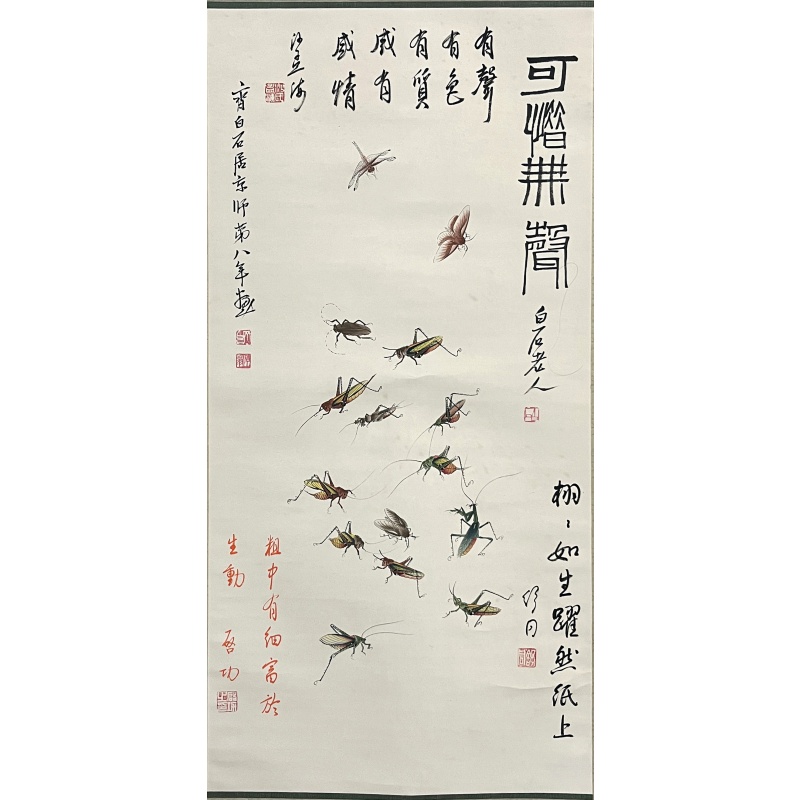 可惜無聲
白石老人
有聲
有色
有質
感有
感情
沙孟海
齊白石居京師第八年畫
栩〻如生躍然紙上
舒同
粗中有細富於
生動 啓功